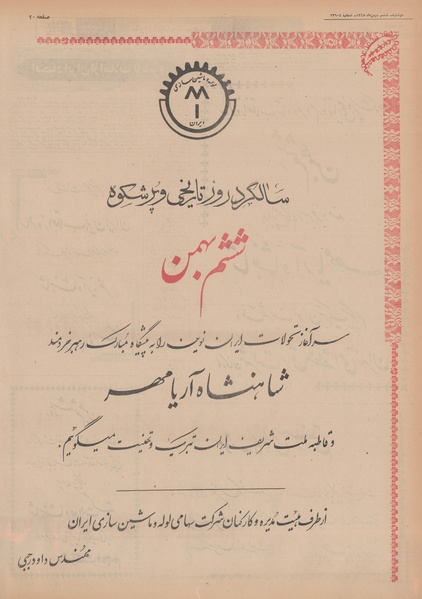 صفحه ۲۰
لوله و ماشین سازی
ایران
سالگرد روز تاریخی و پرشکوه
ششم بهمن
سرآغاز تحولات ایران نوین را به پیشگاه مبارک رهبر خردمند
شاهنشاه آریامهر
و قاطبه ملت شریف ایران تبریک و تهنیت میگوئیم.
از طرف هیئت مدیره و کارکنان شرکت سهامی لوله و ماشین سازی ایران
مهندس داود رجبی